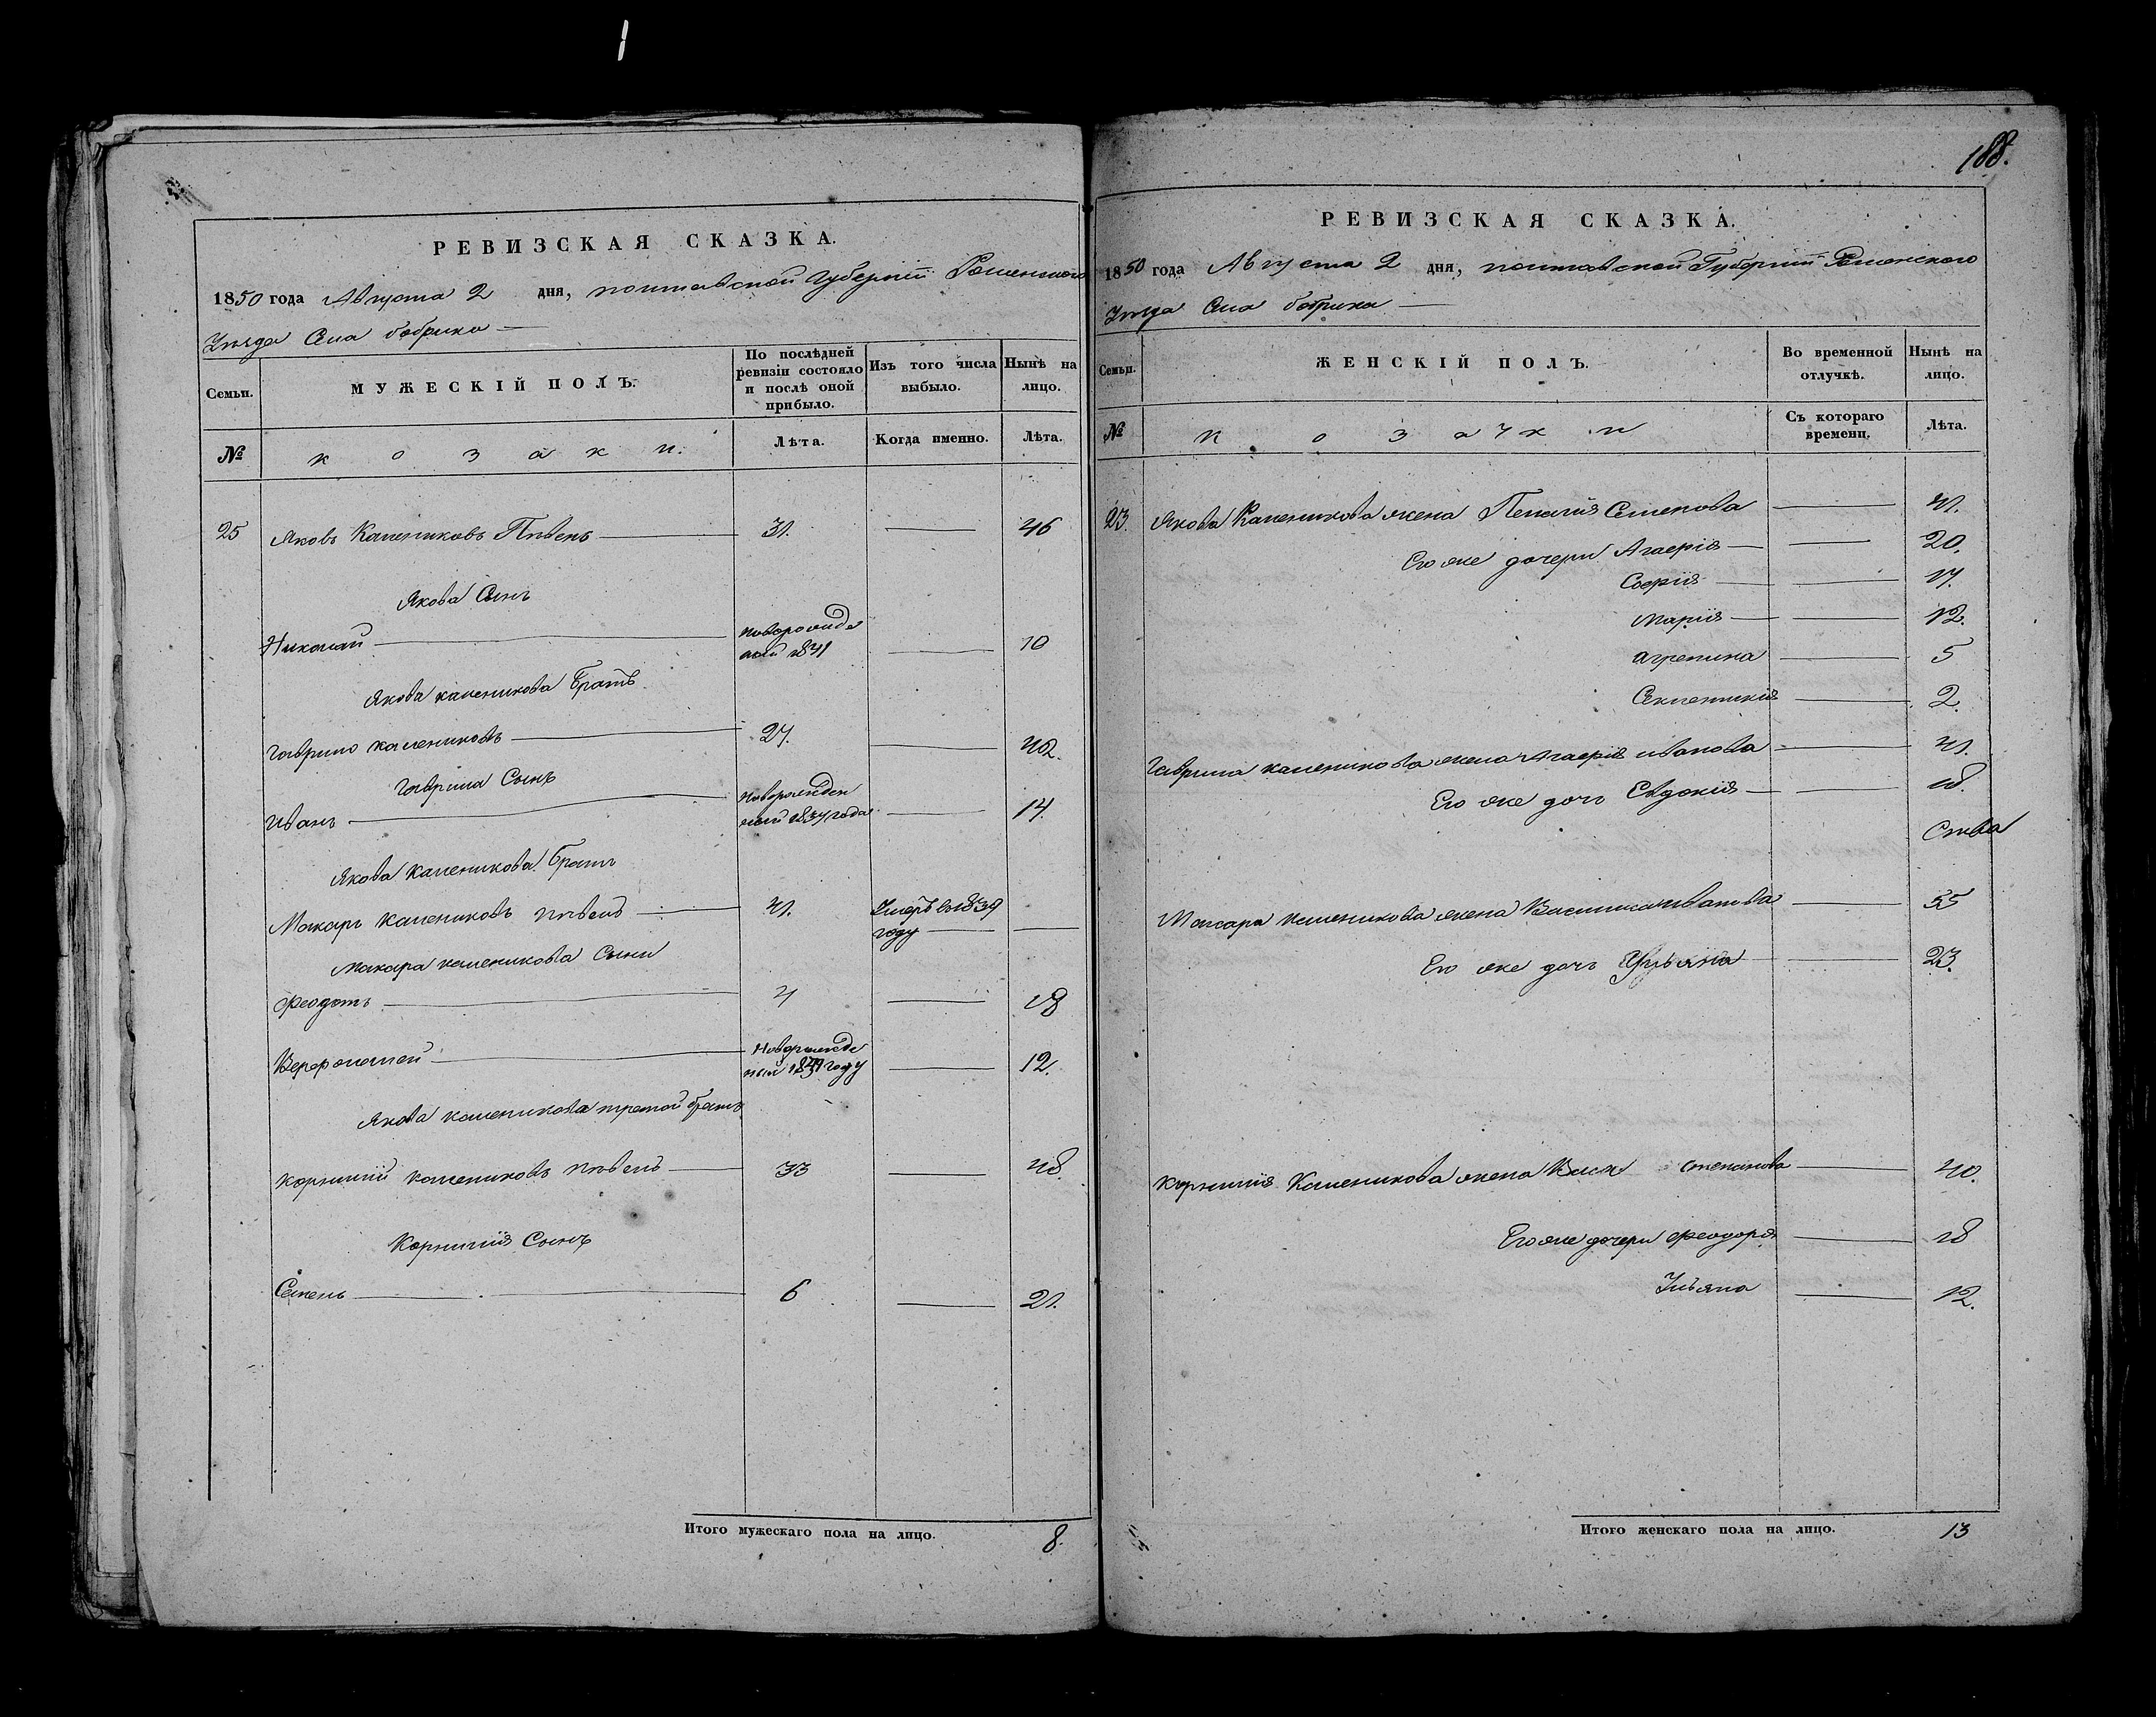 188.
РЕВИЗСКАЯ СКАЗКА.
1850 года Августа 2 дня, полтавской губерніи Роменского
Уѣзда Села бобрика
Семьи.
МУЖЕСКІЙ ПОЛЪ.
По послѣдней ревизіи состояло и послѣ оной прибыло.
Изъ того числа выбыло.
Нынѣ на лицо.
№
козаки.
Лѣта.
Когда именно.
Лѣта.
25 Яковъ Калениковъ Пивень 31. 46
Якова Сынъ
Николай 10
Якова каленикова Братъ
гаврило калениковъ 27. 42.
гаврила Сынъ
Иванъ 14.
Якова каленикова Братъ
Макаръ калениковъ пивень 41. Умеръ в 1839
году
макара каленикова Сыни
Феодотъ 4 18
12.
Якова каленикова третой братъ
корнилий калениковъ пивень 33 48.
Корнилия Сынъ
Семень 6 21.
Итого мужескаго пола на лицо. 8.
РЕВИЗСКАЯ СКАЗКА.
1850 года Августа 2 дня, полтавской Губерніи Роменского
Уѣзда Села бобрика
Семьи.
ЖЕНСКІЙ ПОЛЪ.
Во временной отлучкѣ.
Нынѣ на лицо.
№
козачки
Съ котораго времени.
Лѣта.
23. Якова Каленикова жена Пелагия Семенова 41.
Его же дочери Агафия 20.
София 17.
мария 12.
агрепина 5
2.
гаврила каленикова жена Агафия иванова 41.
Его же дочь Евдокия 18.
Макара каленикова жена Василиса иванова 55
Его же дочь 23.
корнилия Каленикова жена степанова 40.
Его же дочери Феодора 18
Ульяна 12.
Итого женскаго пола на лицо. 13